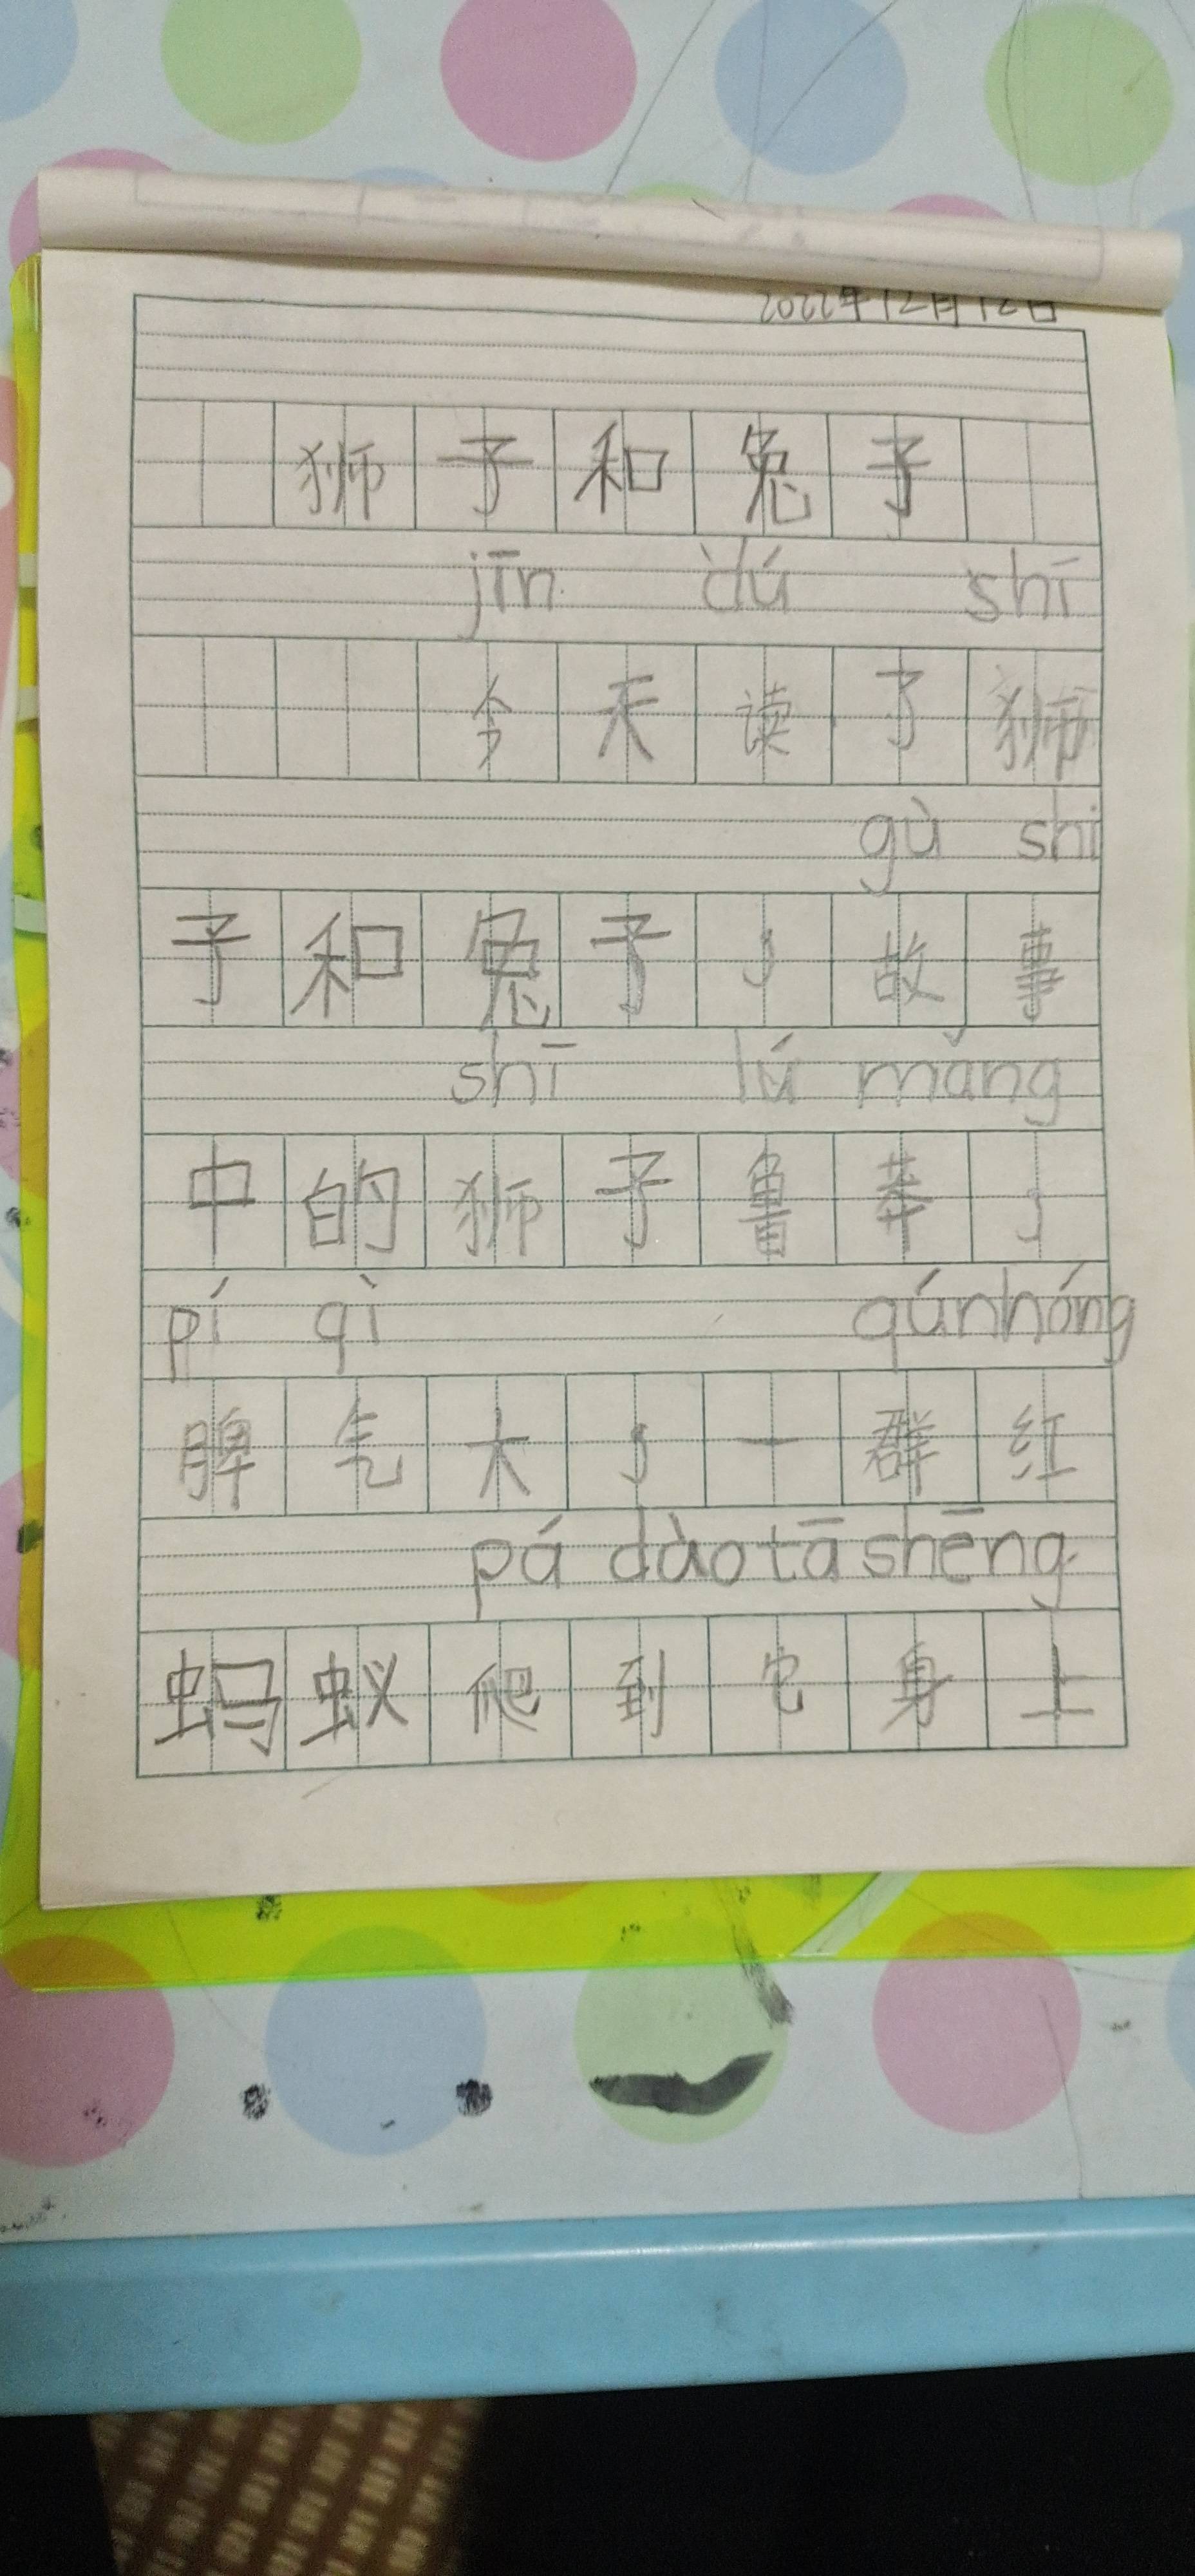 2022年12月12日
狮子和兔子
jīn dú shī
今天读了狮
gù shi
子和兔子，故事
shī lú mǎng
中的狮子鲁莽，
pí qì qúnhóng
脾气大，一群红
pá dào tā shēng
蚂蚁爬到它身上